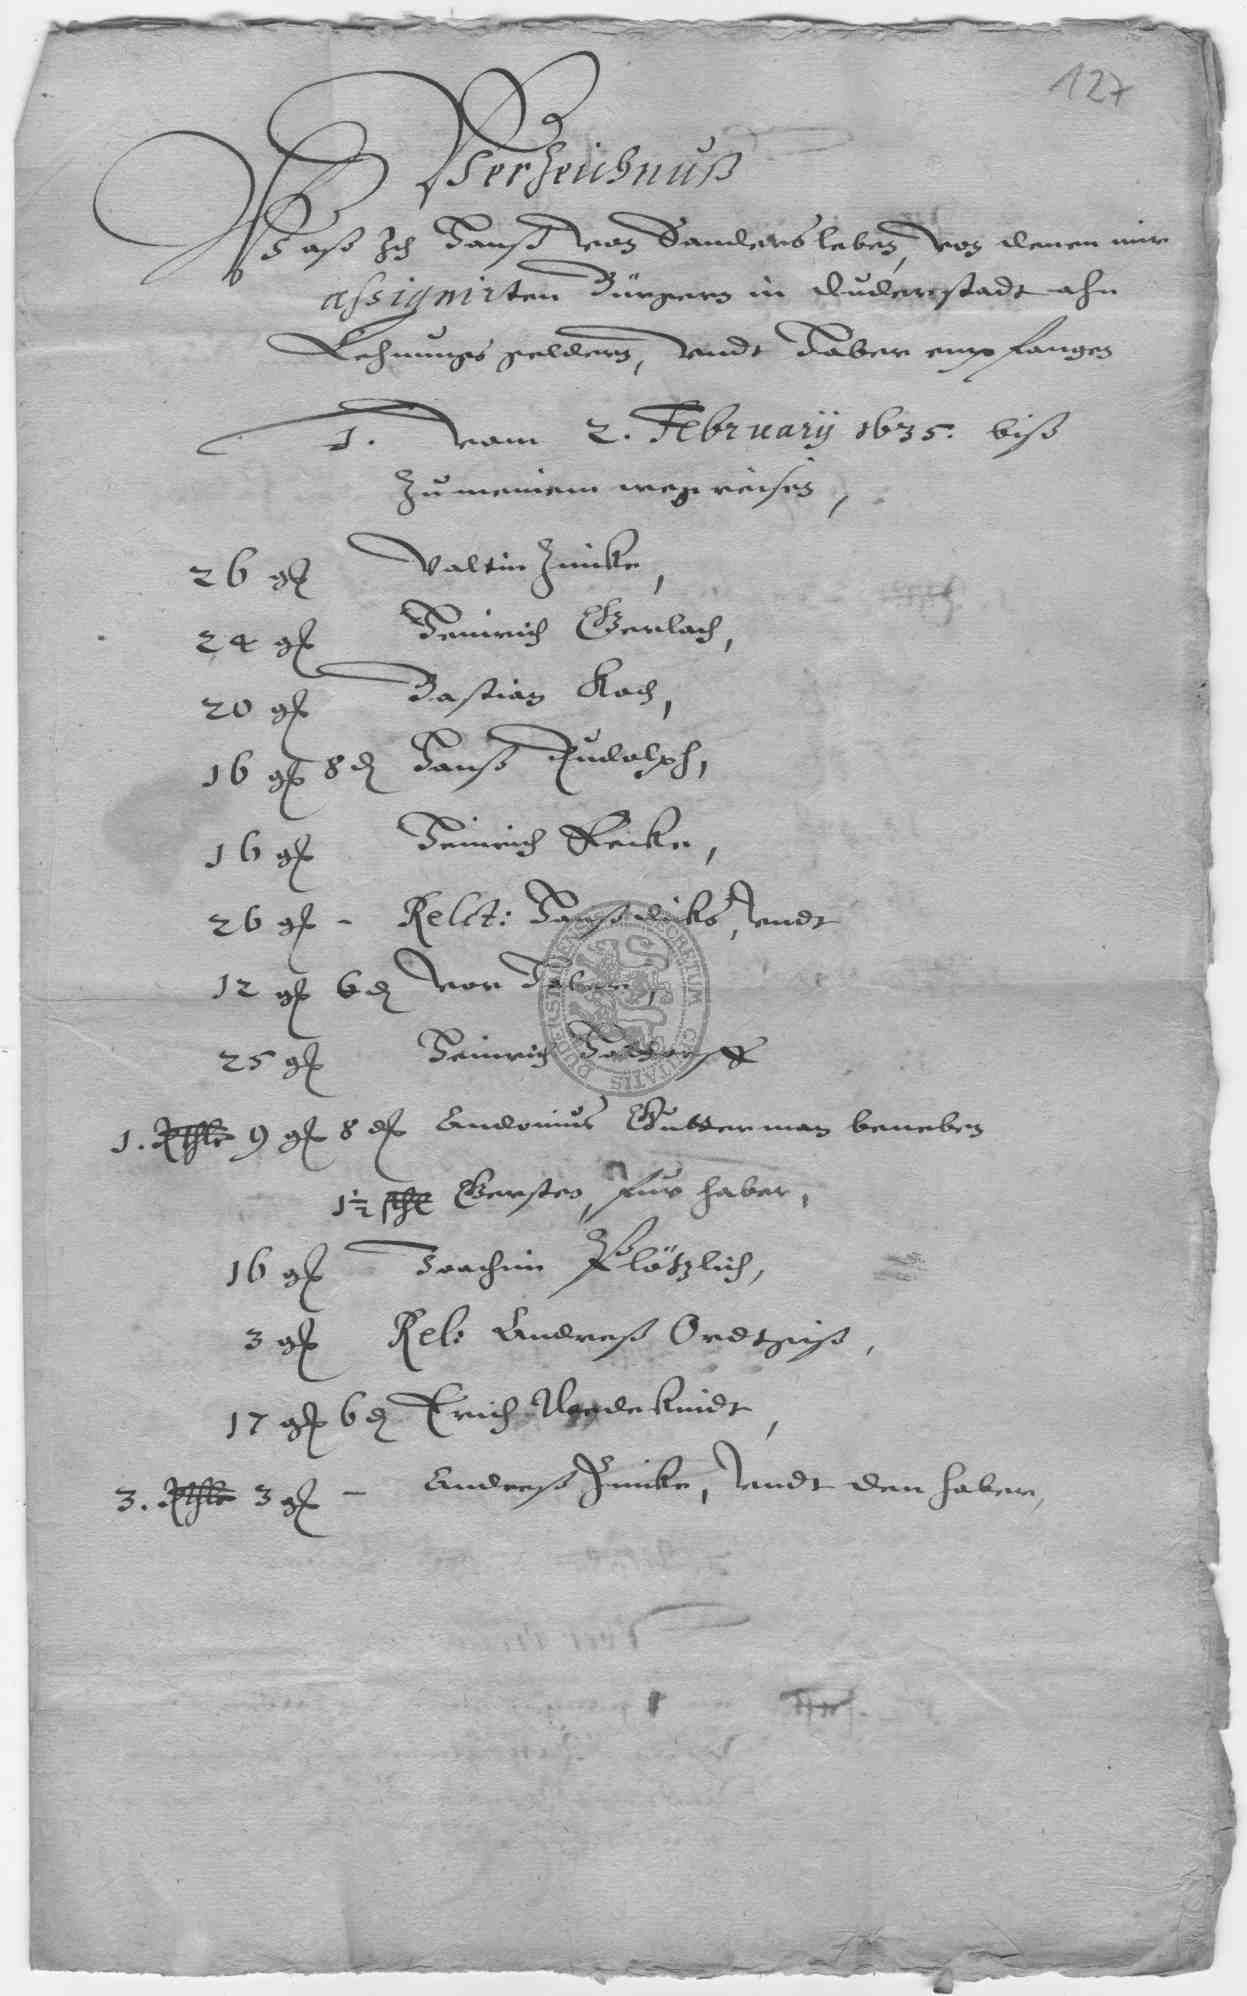 127
Verzeichnuß
Waß Ich Hanß von Sandersleben, von denen mir
assignirten Bürgern in Duderstadt ahn
Lehnungs geldern, undt Haber empfangen
1. vom 2. February 1635. biß
Zu meinem wegreisen,
26 gl Valtin Zinke,
24 gl Heinrich Gerlach,
20 gl Bastian Koch,
16 gl 8 d Hanß Rudolph,
16 gl Heinrich Reike,
26 gl - Relct: Hanß Dicks, undt
12 gl 6 d vor Haber,
25 gl Heinrich
1. Rthlr 9 gl 8 d Andonius Gutterman beneben
1½ Gersten, fur haber,
16 gl Joachim Plötzlich,
3 gl Rel: Andreß
17 gl 6 d Erich Wedekindt,
3. Rthlr 3 gl - Andreß Zinke, undt den haber,
DUDERSTADENSIS SECRETUM CIVITATIS